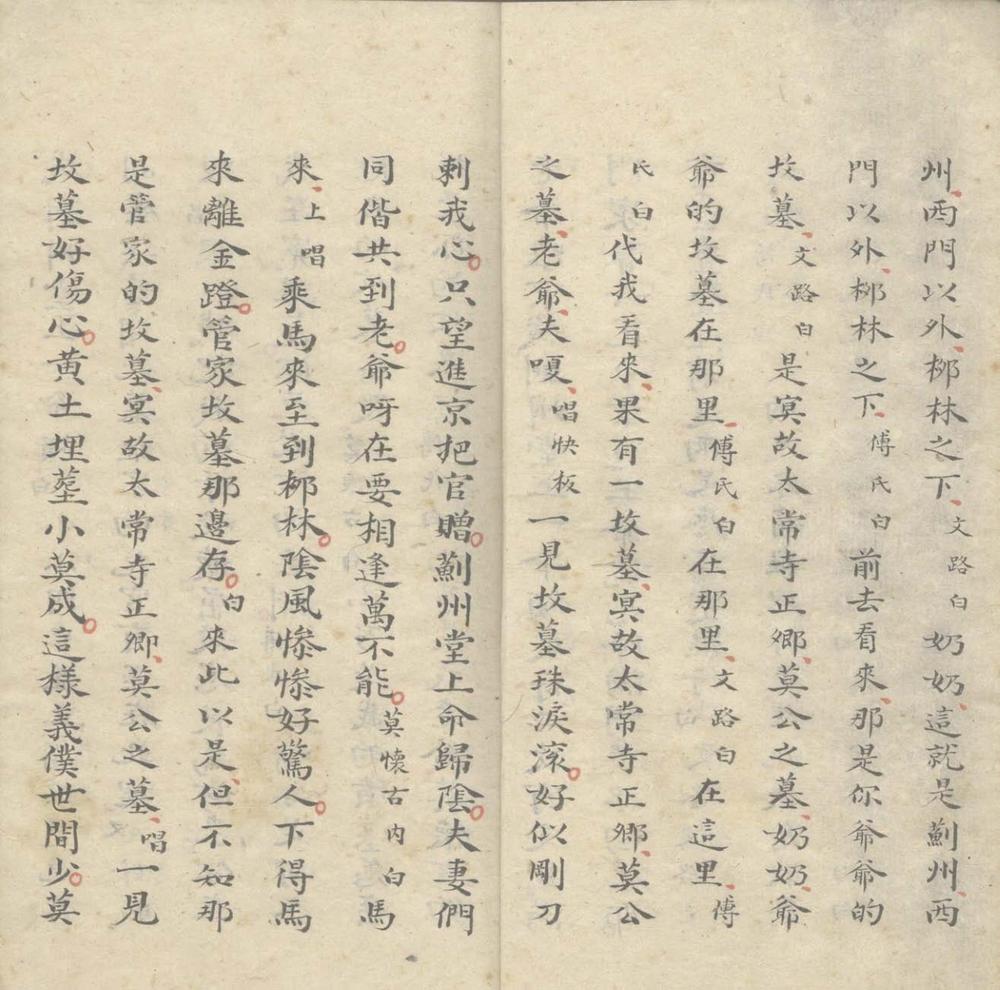 州、西門以外、柳林之下、文路白奶奶、這就是薊州、西
門以外、柳林之下、傅氏白前去看來、那是你爺爺的
坟墓、文路白是冥故太常寺正卿、莫公之墓、奶奶、爺
爺的坟墓在那里、傅氏白在那里、文路白在這里、傅
氏白代我看來、果有一坟墓、冥故太常寺正卿、莫公
之墓、老爺、夫嗄、唱快板一見坟墓珠淚滚。好似剛刀
剌我心。只望進京把官贈。薊州堂上命歸陰。夫妻們
同偕共到老。爺呀在要相逢萬不能。莫懷古内白馬
來、上唱乘馬來至到柳林。陰風惨惨好驚人。下得馬
來離金蹬。管家坟墓那邊存。白來此以是、但不知那
是管家的坟墓、冥故太常寺正卿、莫公之墓、唱一見
坟墓好傷心。黄土埋塟小莫成。這樣義僕世間少。莫